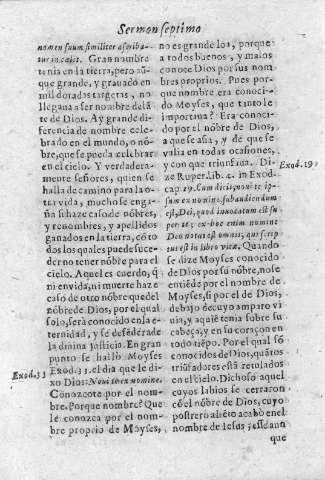 Sermon septimo
nomen suum similiter ascriba-
tur in cælis. Gran nombre
tenia en la tierra, pero aũ-
que grande, y grauado en
mil dorados targetas, no
llegana a ser nombre delã-
te de Dios. Ay grande di-
ferencia de nombre cele-
brado en el mundo, o nõ-
bre, que se pueda celebrar
en el cielo. Y verdadera-
mente señores, quien se
halla de camino para la o-
tra vida, mucho se enga-
ña si haze caso de nõbres,
y renombres, y apellidos
ganados en la tierra, cõ to
dos los quales puede suce-
der no tener nõbre para el
cielo. Aquel es cuerdo, q̃
ni en vida, ni muerte haze
caso de otro nõbre que del
nõbre de Dios, por el qual
solo, será conocido en la e-
ternidad, y se defẽderá de
la diuina justicia. En gran
punto se halló Moyses
Exod. 33
Exod. 33. el dia que le di-
xo Dios: Noui te ex nomine.
Conozcote por el nom-
bre. Porque nombre? Que
le conozca por el nom-
bre proprio de Moyses,
no es grande loa, porque
a todos buenos, y malos
conoce Dios por sus nom
bres proprios. Pues por-
que nombre era conoci-
do Moyses, que tanto le
importaua? Era conoci-
do por el nõbre de Dios,
a que se asia, y de que se
valia en todas ocasiones,
y con que triunfaua. Di-
Exod. 19
ze Ruper. lib. 4. in Exod.
cap. 19. Cum dicit, noui te ip-
sum ex nomine, subaudiendum
est, Dei, quod inuocatum est su
per te; ex hoc enim nomine
Deo notus est omnis, qui scrip
tus est in libro vitæ. Quando
se dize Moyses conocido
de Dios por su nõbre, no se
entiẽde por el nombre de
Moyses, si por el de Dios,
debajo de cuyo amparo vi
uia, y a quiẽ tenia sobre su
cabeça, y en su coraçon en
todo tiẽpo. Por el qual sõ
conocidos de Dios, quãtos
triũfadores està retulados
en el cielo. Dichoso aquel
cuyos labios se cerraron
cõ el nõbre de Dios, cuyo
postrero aliẽto acabó en el
nombre de Iesus; esse dauan
que